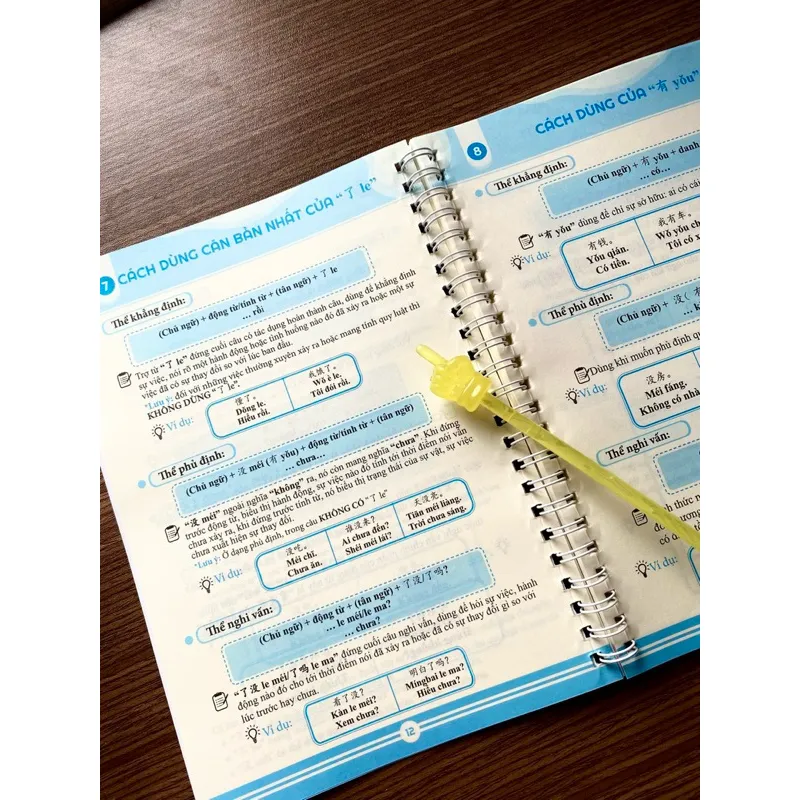 7 CÁCH DÙNG CĂN BẢN NHẤT CỦA “了 le”
Thể khẳng định:
(Chủ ngữ) + động từ/tính từ + (tân ngữ) + 了 le
... rồi
Trợ từ “了 le” đứng cuối câu có tác dụng hoàn thành câu, dùng để khẳng định
sự việc, nói rõ một hành động hoặc tình huống nào đó đã xảy ra hoặc một sự
việc đã có sự thay đổi so với lúc ban đầu.
*Lưu ý: đối với những việc thường xuyên xảy ra hoặc mang tính quy luật thì
KHÔNG DÙNG “了 le”.
Ví dụ:
懂了。
Dǒng le.
Hiểu rồi.
我饿了。
Wǒ è le.
Tôi đói rồi.
Thể phủ định:
(Chủ ngữ) + 没 méi (有 yǒu) + động từ/tính từ + (tân ngữ)
... chưa...
“没 méi” ngoài nghĩa “không” ra, nó còn mang nghĩa “chưa”. Khi đứng
trước động từ, biểu thị hành động, sự việc nào đó tính tới thời điểm nói vẫn
chưa xảy ra, khi đứng trước tính từ, nó biểu thị trạng thái của sự vật, sự việc
chưa xuất hiện sự thay đổi.
*Lưu ý: Ở dạng phủ định, trong câu KHÔNG CÓ “了 le”
Ví dụ:
没吃。
Méi chī.
Chưa ăn.
谁没来?
Ai chưa đến?
Shéi méi lái?
天没亮。
Tiān méi liàng.
Trời chưa sáng.
Thể nghi vấn:
(Chủ ngữ) + động từ + (tân ngữ) + 了没/了吗?
... le méi/le ma?
... chưa?
“了没 le méi/了吗 le ma” đứng cuối câu nghi vấn, dùng để hỏi sự việc, hành
động nào đó cho tới thời điểm nói đã xảy ra hoặc đã có sự thay đổi gì so với
lúc trước hay chưa.
Ví dụ:
看了没?
Kàn le méi?
Xem chưa?
明白了吗?
Míngbai le ma?
Hiểu chưa?
12
8 CÁCH DÙNG CỦA “有 yǒu”
Thể khẳng định:
(Chủ ngữ) + 有 yǒu + danh
... có...
“有 yǒu” dùng để chỉ sự sở hữu: ai có cái
Ví dụ:
有钱。
Yǒu qián.
Có tiền.
我有车。
Wǒ yǒu ch
Tôi có x
Thể phủ định:
(Chủ ngữ) + 没 (有
... k
Dùng khi muốn phủ định qu
Ví dụ:
没房。
Méi fáng.
Không có nhà
Thể nghi vấn:
Ví dụ: